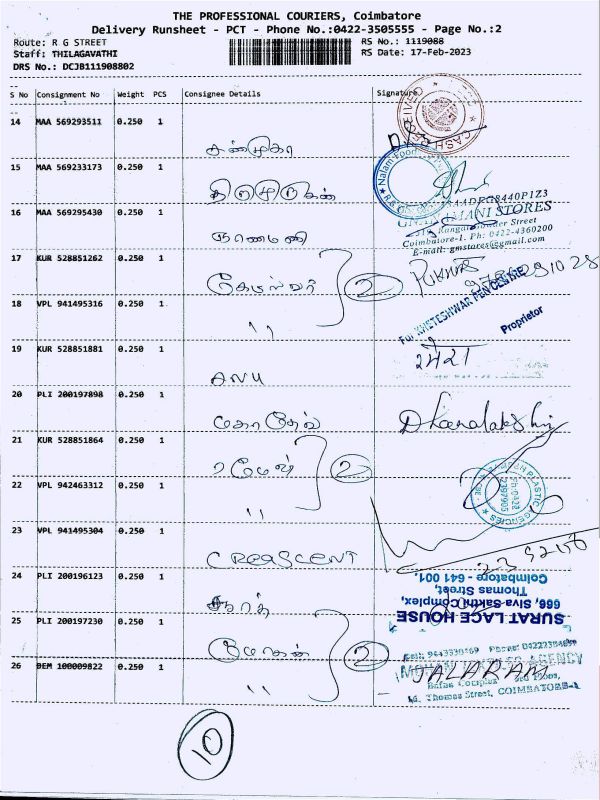 THE PROFESSIONAL COURIERS, Coimbatore
Delivery Runsheet - PCT - Phone No.:0422-3505555 - Page No.:2
Route: R G STREET
RS No.: 1119088
Staff: THILAGAVATHI
RS Date: 17-Feb-2023
DRS No.: DCJB111908802
S No Consignment No Weight PCS Consignee Details Signature
14 MAA 569293511 0.250 1
சண்முகா
15 MAA 569233173 0.250 1
திருமுருகன்
16 MAA 569295430 0.250 1
ஞானமணி
17 KUR 528851262 0.250 1
2
18 VPL 941495316 0.250 1
"
19 KUR 528851881 0.250 1
ANU
20 PLI 200197898 0.250 1
மகாதேவ்
Dhanalakshmi
21 KUR 528851864 0.250 1
ரமேஷ் 2
22 VPL 942463312 0.250 1
"
23 VPL 941495304 0.250 1
CREASCENT
24 PLI 200196123 0.250 1
25 PLI 200197230 0.250 1
மோகன் 2
26 DEM 100009822 0.250 1
"
JALARAM
10
CASH RECEIVED
Nalam Food
GNANAMANI STORES
Coimbatore-1. Ph: 0422-4360200
E-mail: gmstores@gmail.com
For KHETESHWAR PEN CENTRE
Proprietor
PLASTIC AGENCIES
SURAT LACE HOUSE
666, Siva Sakthi Complex,
Thomas Street,
Coimbatore - 641 001.
AGENCY
Thomas Street, COIMBATORE-1